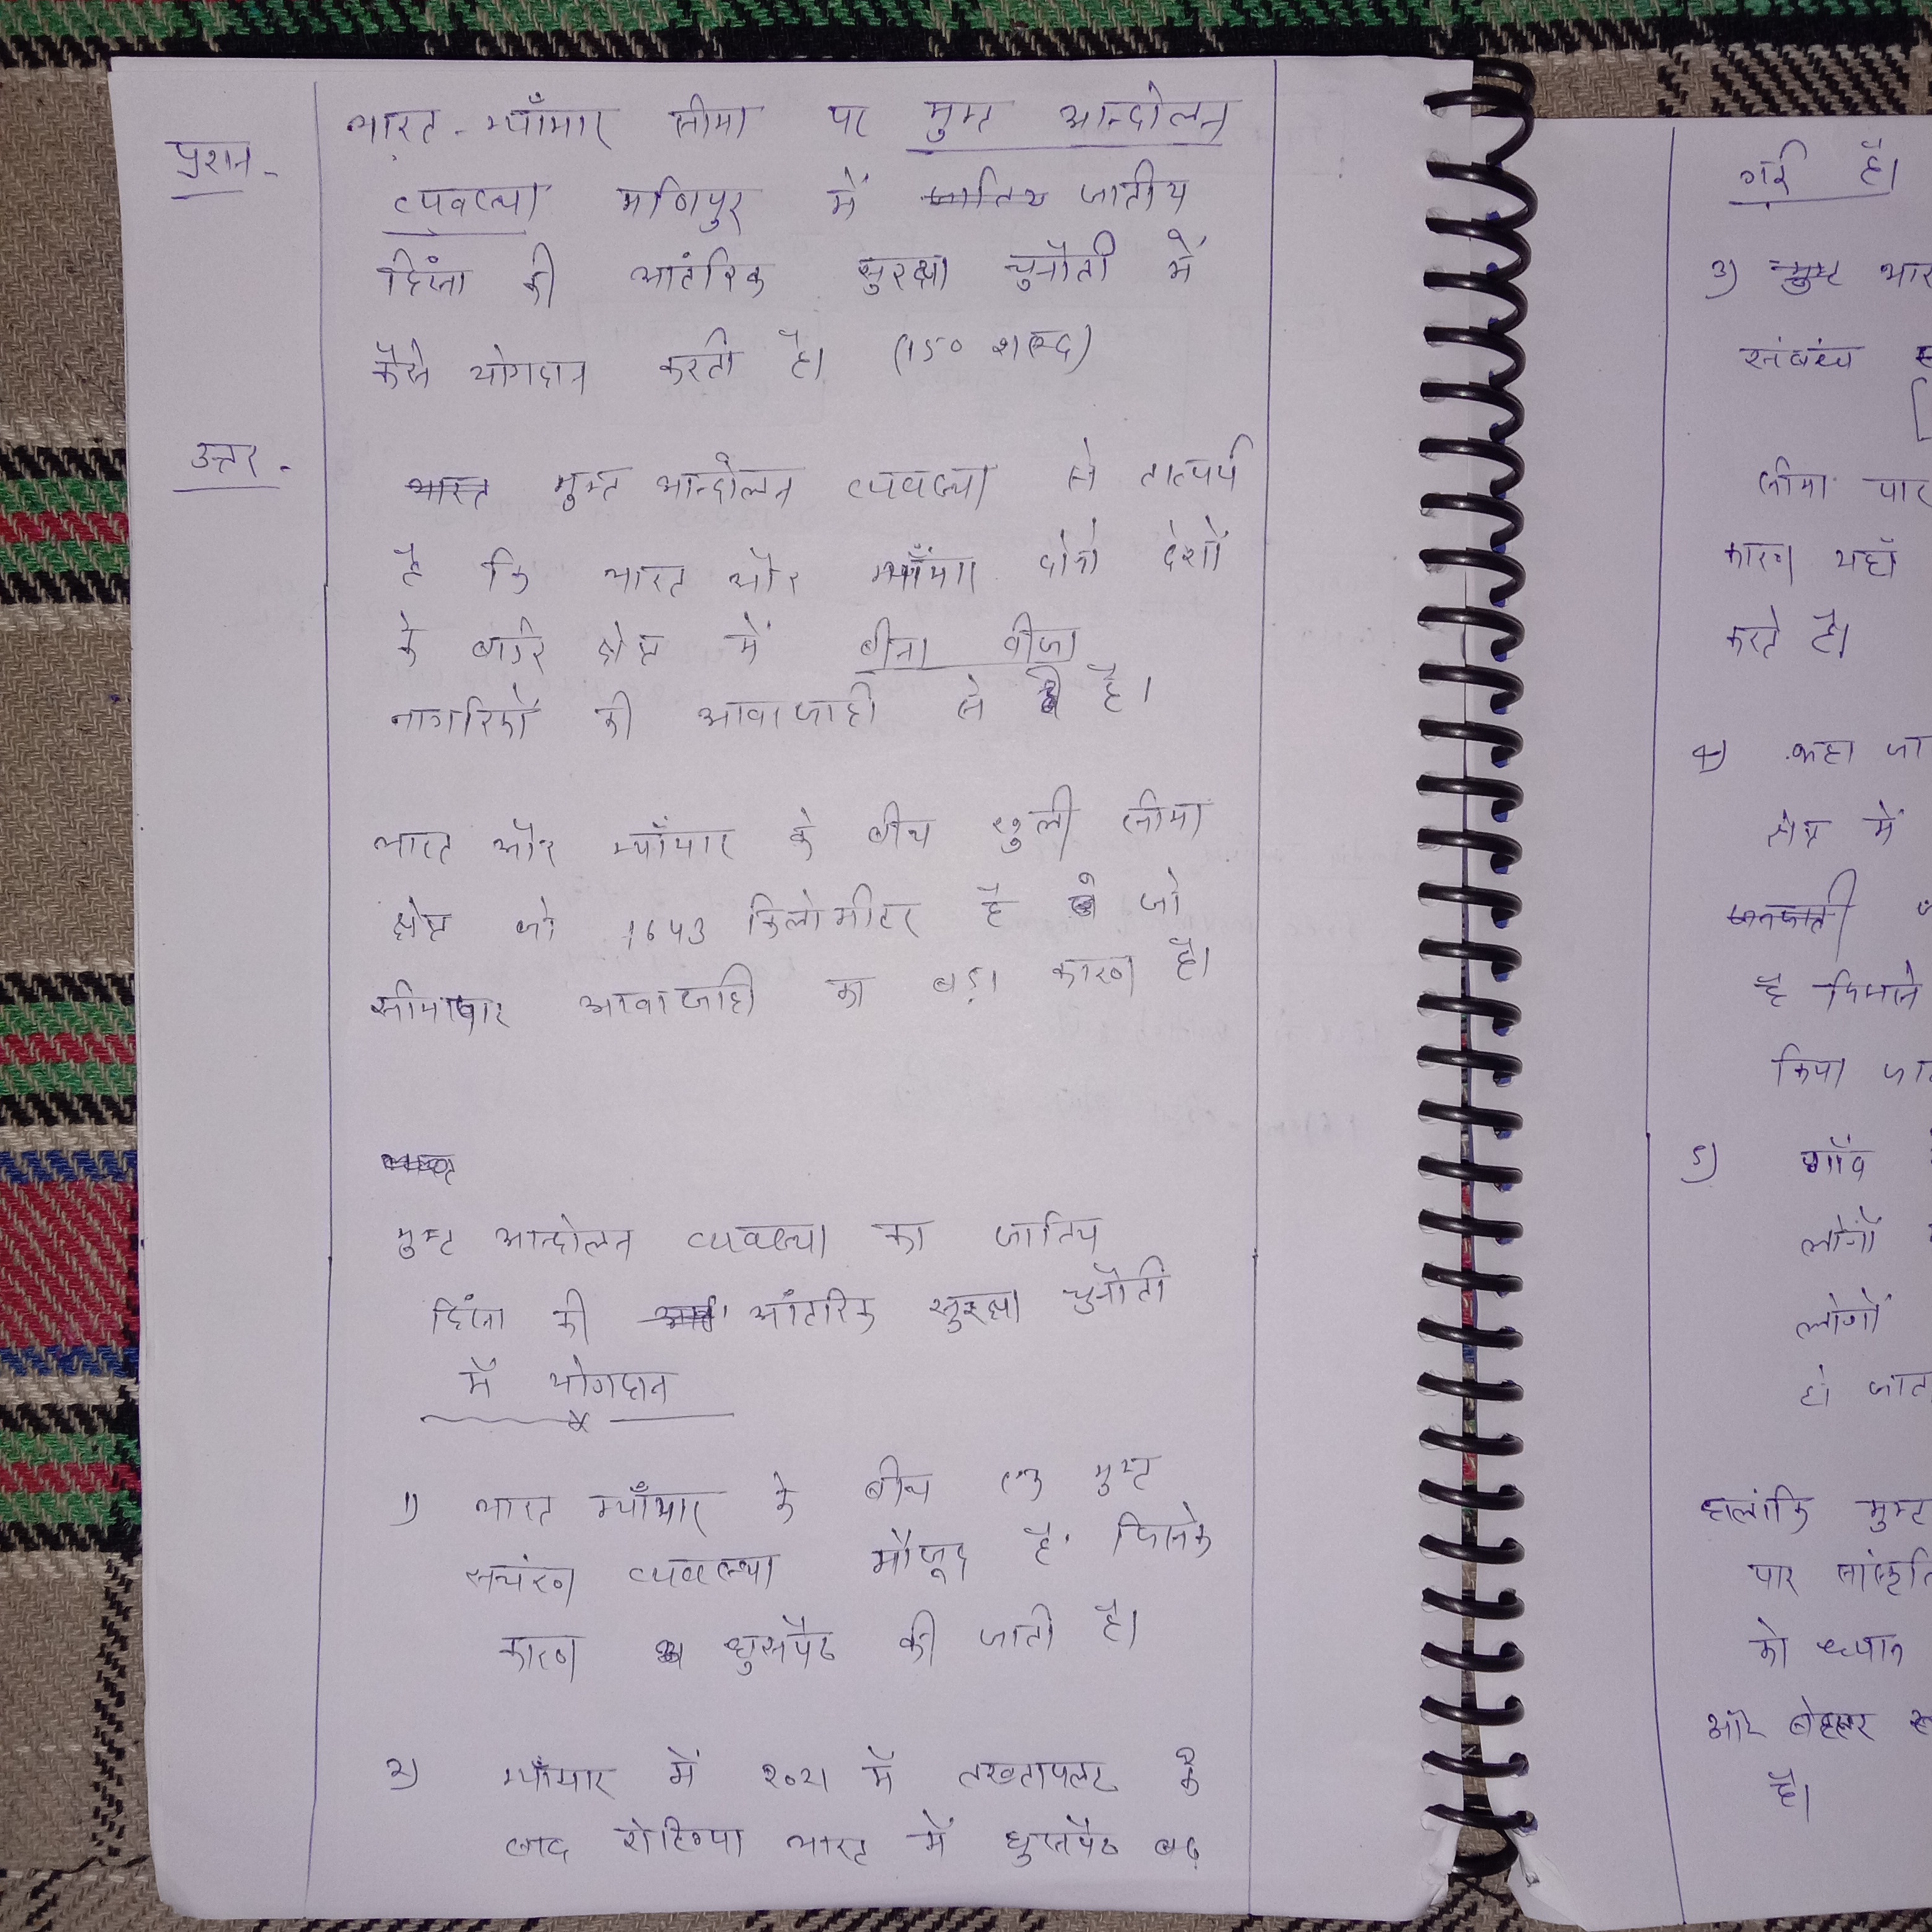 प्रश्न -
भारत - म्याँमार सीमा पर मुक्त आन्दोलन
व्यवस्था मणिपुर में जातिय जातीय
हिंसा की आतंरिक सुरक्षा चुनौती में
कैसे योगदान करती है। (150 शब्द)
उत्तर -
भारत मुक्त आन्दोलन व्यवस्था से तात्पर्य
है कि भारत और म्याँमार दोनो देशों
के बार्डर क्षेत्र में बीना वीजा
नागरिकों की आवाजाही से है।
भारत और म्याँमार के बीच खुली सीमा
क्षेत्र जो 1643 किलोमीटर है जो
सीमापार आवाजाही का बड़ा कारण है।
मुक्त आन्दोलन व्यवस्था का जातिय
हिंसा की आंतरिक सुरक्षा चुनौती
में योगदान
1) भारत म्याँमार के बीच एक मुक्त
सचंरण व्यवस्था मौजूद है जिसके
कारण घुसपैठ की जाती है।
2) म्याँमार में 2021 में तख्तापलट के
बाद रोहिंग्या भारत में घुसपैठ बढ़
गई है।
3) मुक्त भार
संबंध
सीमा पार
कारण यहाँ
करते है।
4) कहा जा
क्षेत्र में
जनजाती
है जिसमे
किया जा
5) गाँव
लोगों
लोगों
हो जात
हालांकि मुक्त
पार सांस्कृति
को ध्यान
और बेहतर
है।